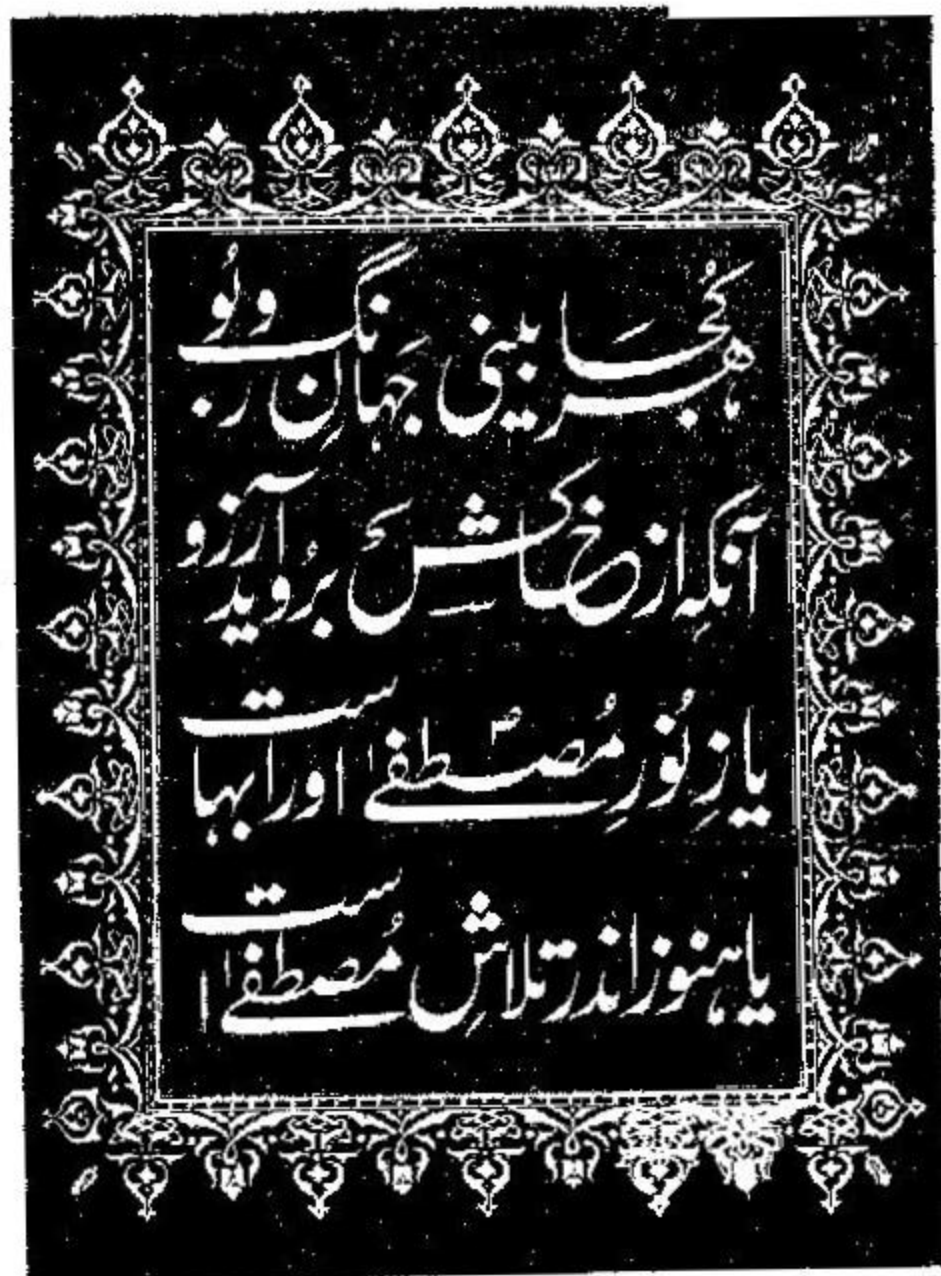 ہر کُجا بینی جَہانِ رنگ و بُو
آنکہ از خاکش بِرُوید آرزو
یا زِ نُورِ مُصطفیٰؐ او را بہاست
یا ہنوز اندر تلاشِ مُصطفیٰؐ است